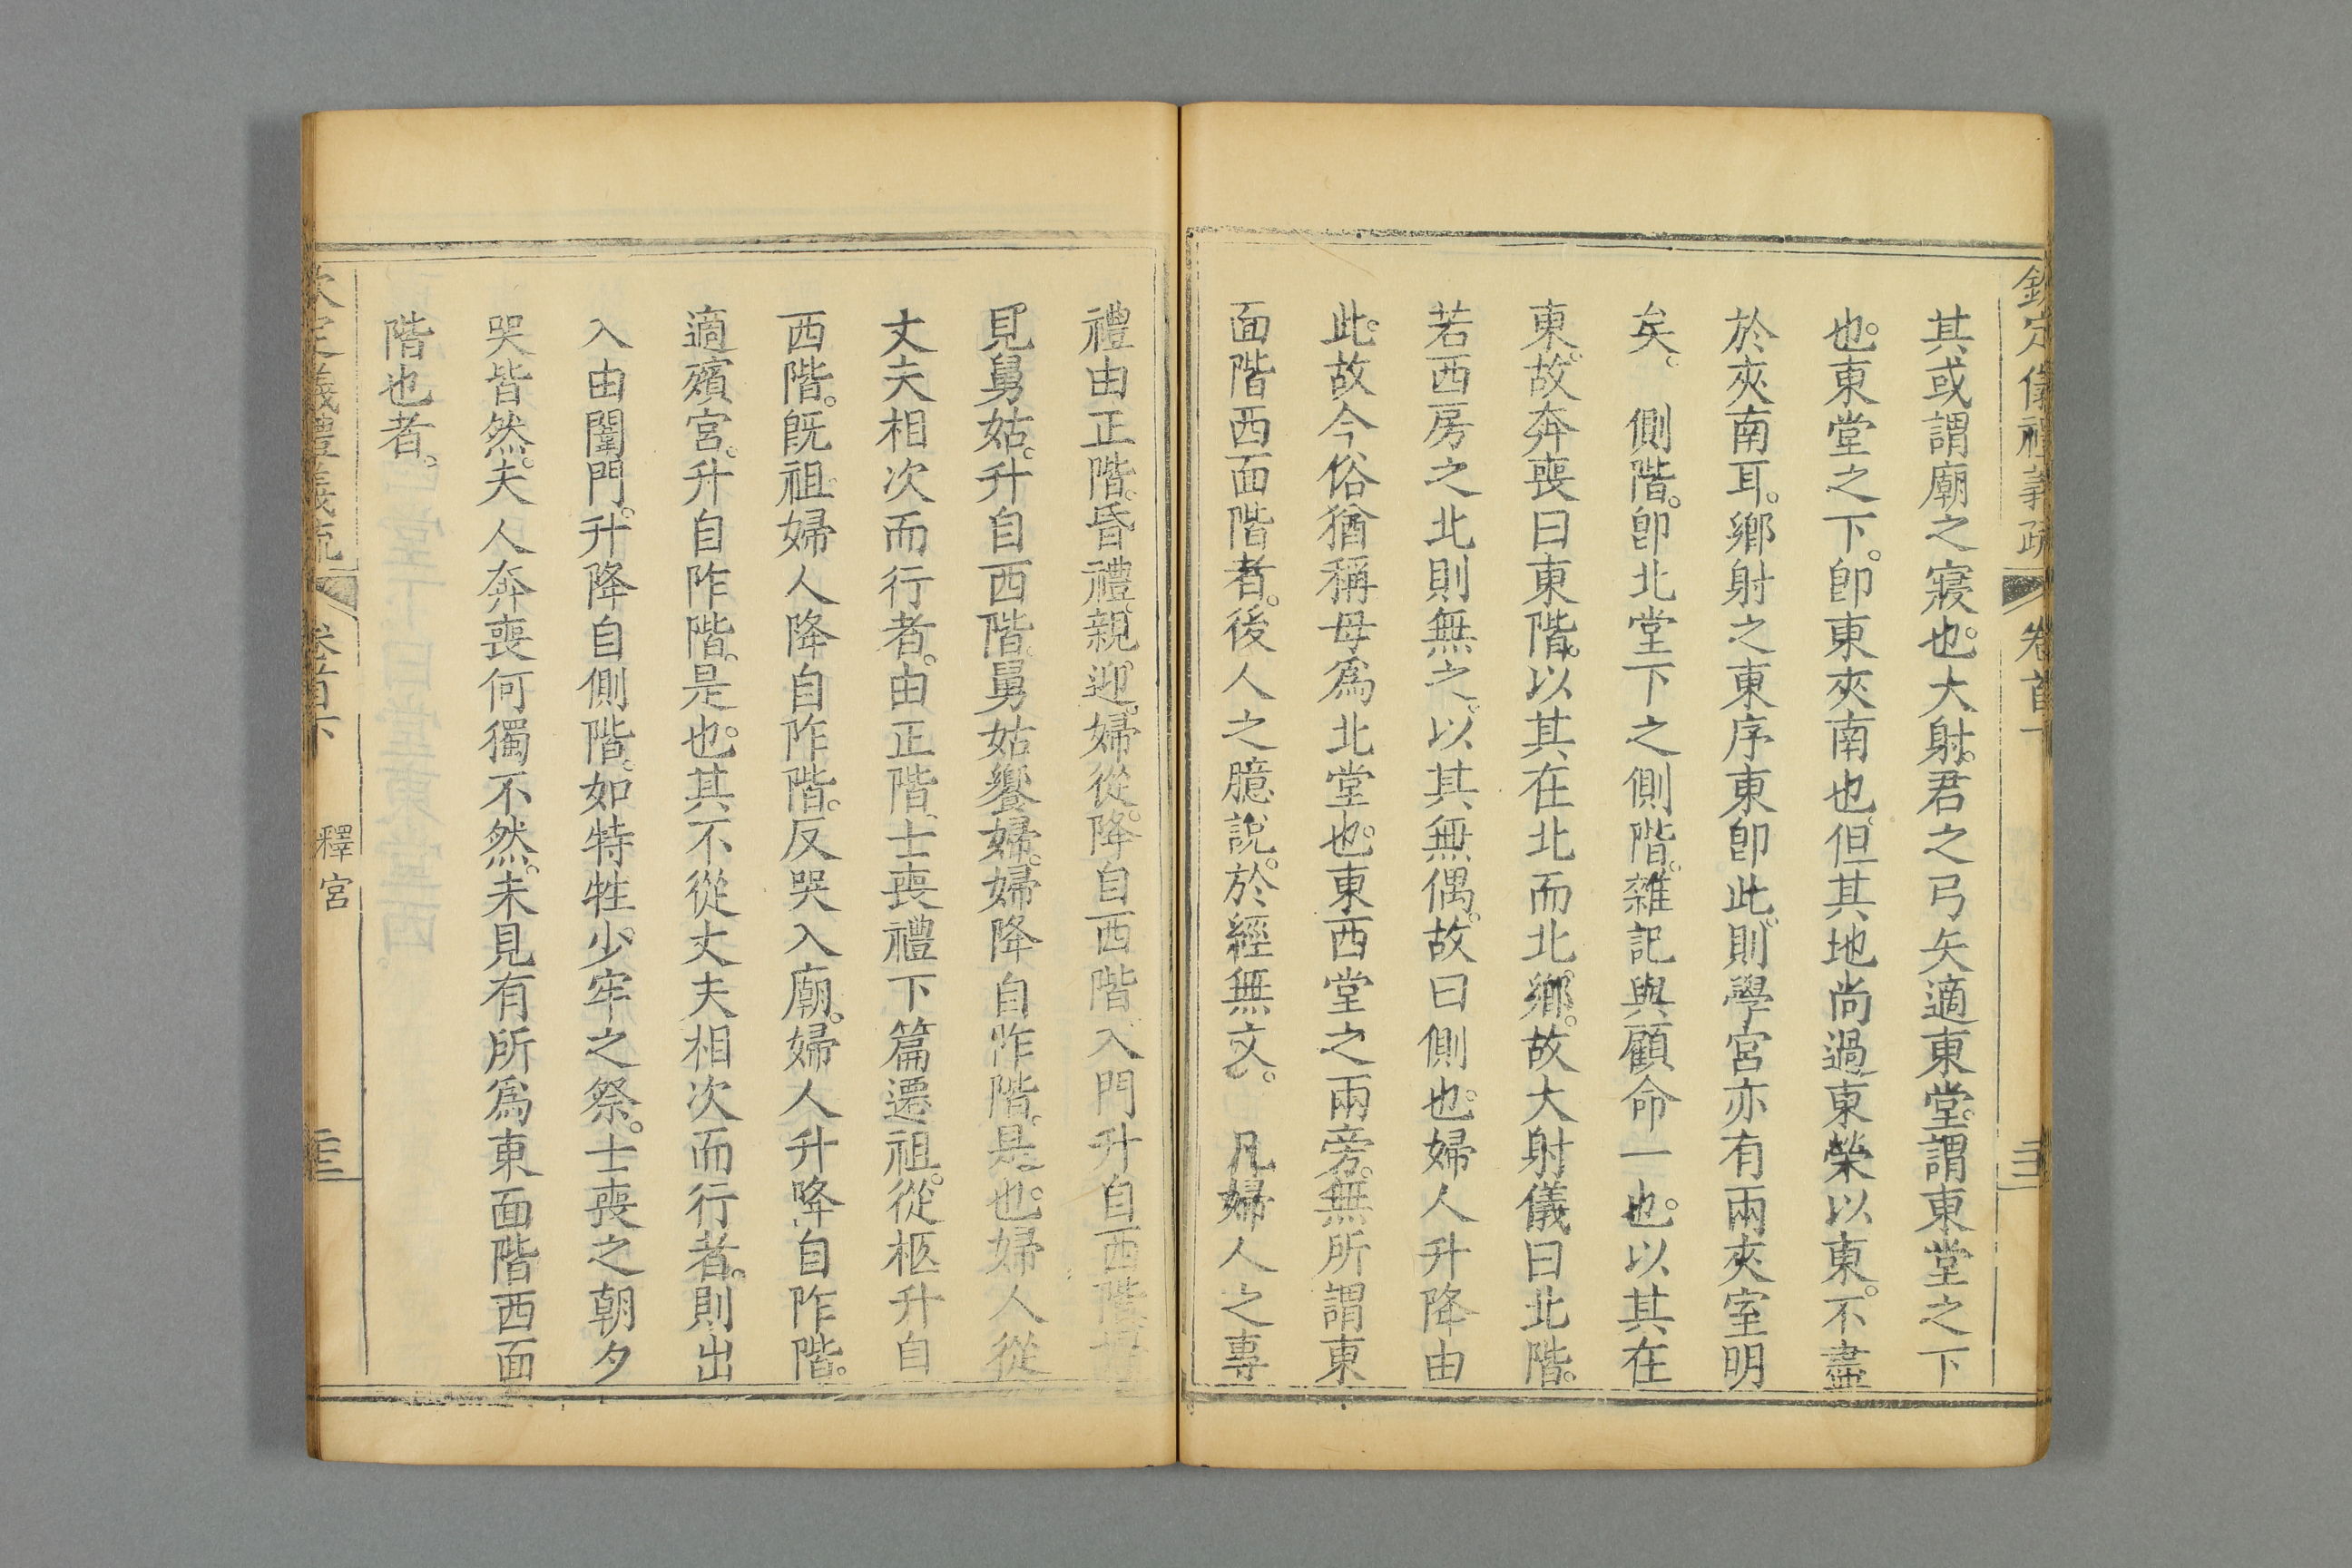 欽定儀禮義疏 卷首下
其或謂廟之寢也。大射。君之弓矢適東堂。謂東堂之下
也。東堂之下。卽東夾南也。但其地尚過東榮以東。不盡
於夾南耳。鄉射之東序東卽此。則學宮亦有兩夾室明
矣。 側階。卽北堂下之側階。雜記與顧命一也。以其在
東。故奔喪曰東階。以其在北而北鄉。故大射儀曰北階。
若西房之北則無之。以其無偶。故曰側也。婦人升降由
此。故今俗猶稱母爲北堂也。東西堂之兩旁。無所謂東
面階西面階者。後人之臆說。於經無文。 凡婦人之專
禮由正階。昏禮。親迎。婦從。降自西階。入門升自西階。
見舅姑。升自西階。舅姑饗婦。婦降自阼階。是也。婦人從
丈夫相次而行者。由正階。士喪禮下篇遷祖。從柩升自
西階。旣祖。婦人降自阼階。反哭入廟。婦人升降自阼階。
適殯宮。升自阼階。是也。其不從丈夫相次而行者。則出
入由闈門。升降自側階。如特牲少牢之祭。士喪之朝夕
哭皆然。夫人奔喪何獨不然。未見有所爲東面階西面
階也者。
欽定儀禮義疏 卷首下 釋宮